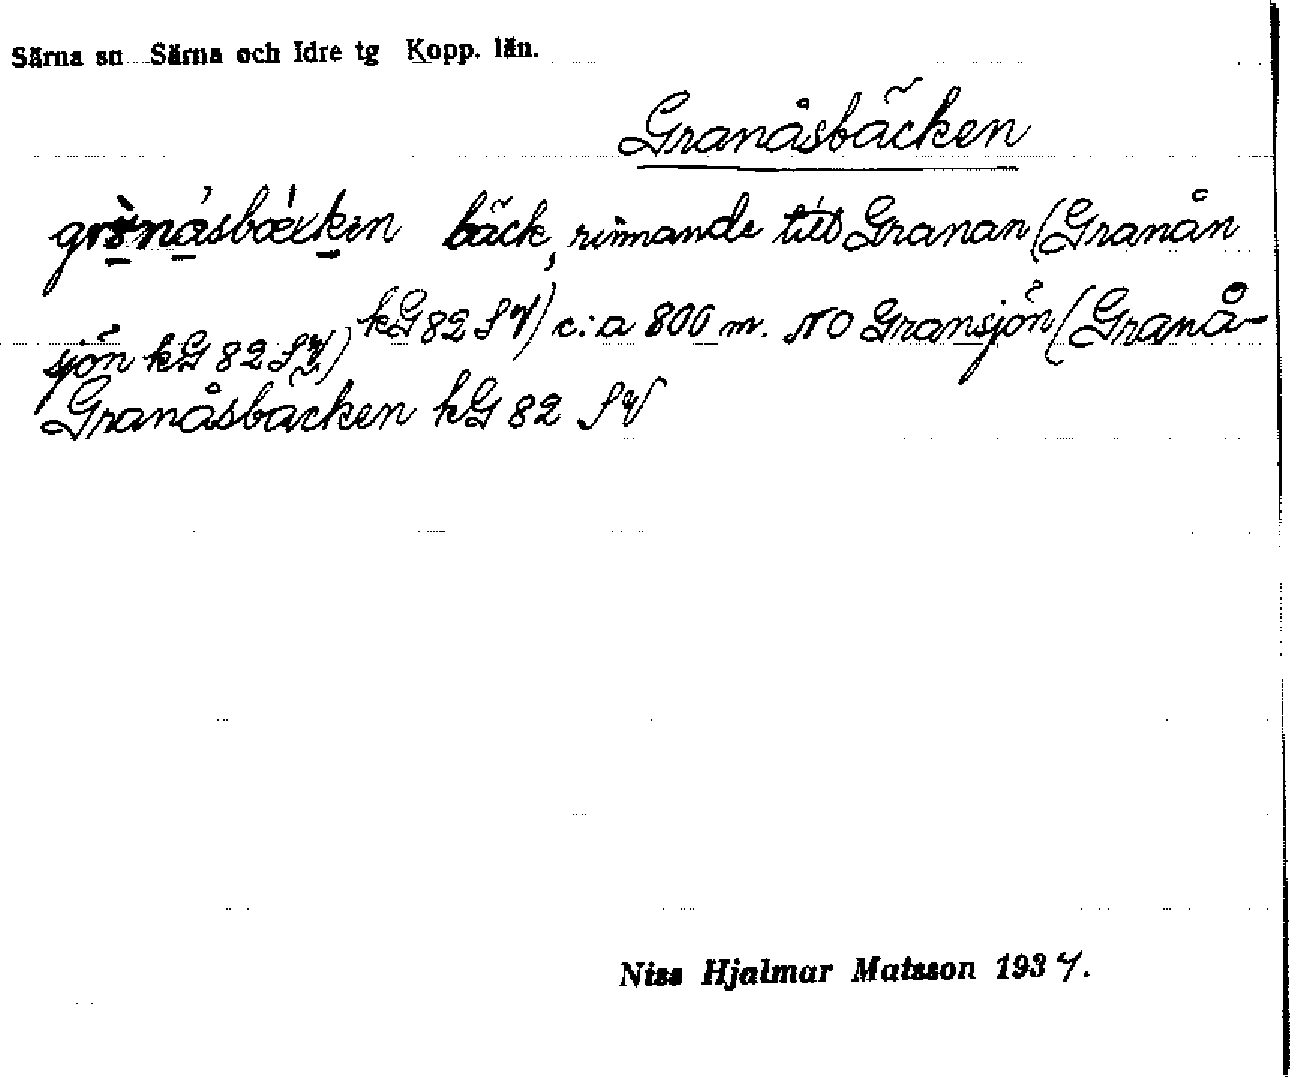 Särna sn Särna och Idre tg Kopp. län.
Granåsbäcken
bäck, rinnande till Granan (Granån
kG 82 SV) c:a 800 m. NO Gransjön (Granå-
sjön kG 82 SV)
Granåsbäcken kG 82 SV
Niss Hjalmar Matsson 1937.